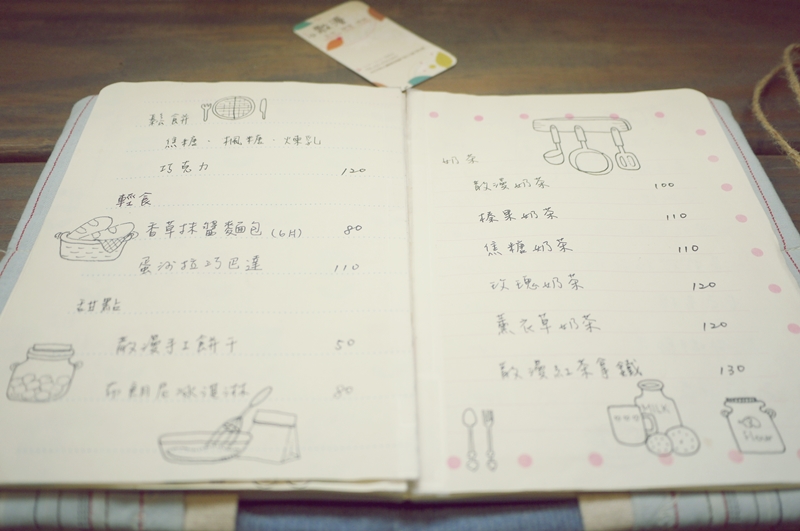 散漫
鬆餅
焦糖．楓糖．煉乳
巧克力 120
輕食
香草抹醬麵包(6片) 80
蛋沙拉巧巴達 110
甜點
散漫手工餅干 50
布朗尼冰淇淋 80
奶茶
散漫奶茶 100
榛果奶茶 110
焦糖奶茶 110
玫瑰奶茶 120
薰衣草奶茶 120
散漫紅茶拿鐵 130
MILK
flour